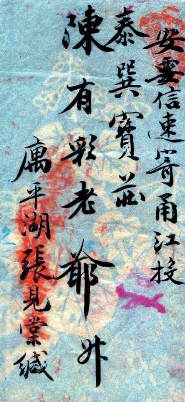 安要信速寄甬江投
泰巽寶莊
陳有彩老爺升
寓平湖張見棠緘